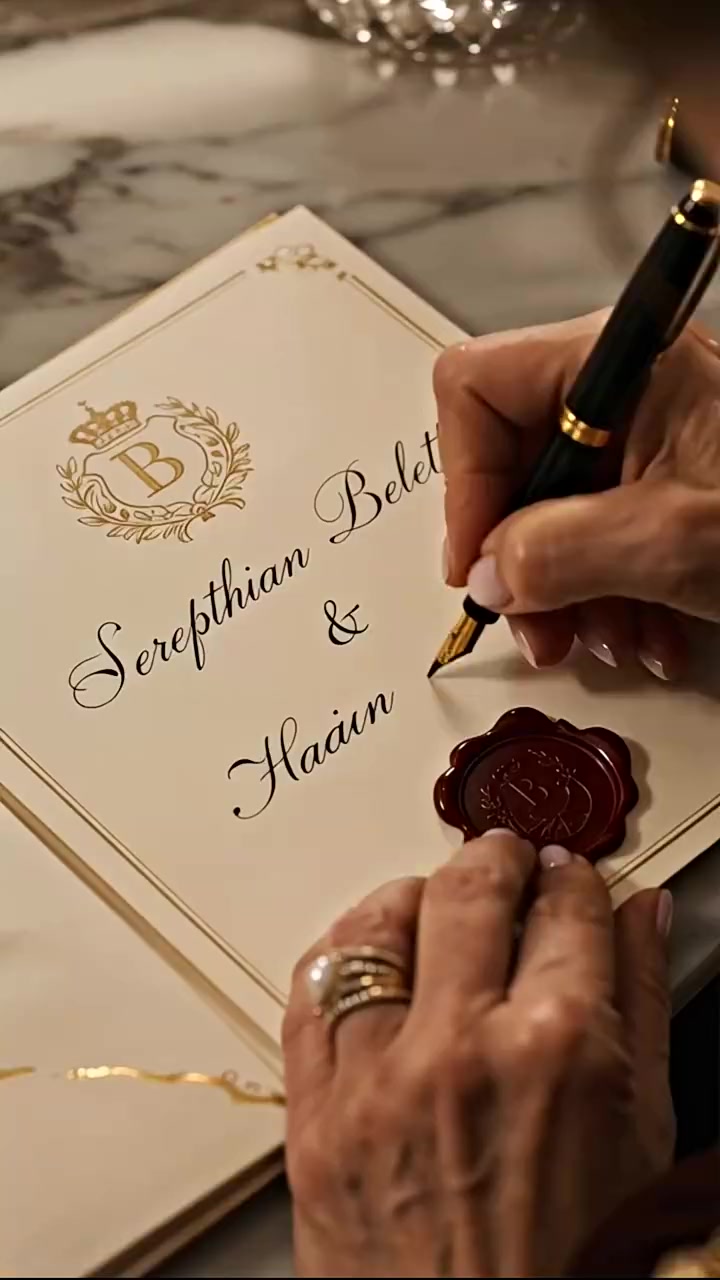 B
Serepthian Belet
&
Haȧın
B